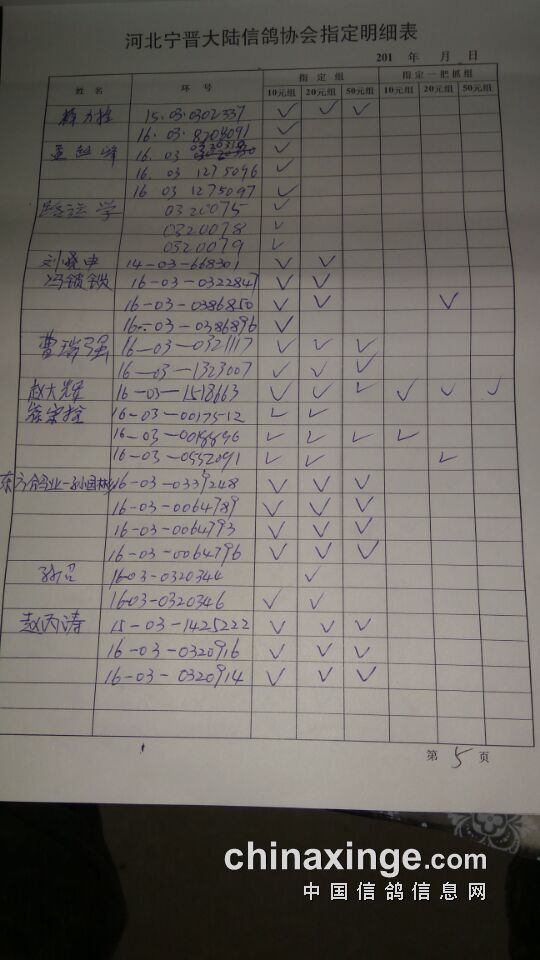 河北宁晋大陆信鸽协会指定明细表
201 年 月 日
姓名 环号 指定组 指定一把抓组
10元组 20元组 50元组 10元组 20元组 50元组
15.03.0302337 ✓ ✓ ✓
16.03.8208091 ✓
16.03 ✓
16 03 1275096 ✓
16 03 1275097 ✓
0320075 ✓
0320078 ✓
0320079 ✓
刘晓申 14-03-668301 ✓ ✓
冯锁钗 16-03-0322847 ✓ ✓
16-03-0386850 ✓ ✓ ✓
16-03-0386896 ✓
曹瑞强 16-03-0321117 ✓ ✓ ✓
16-03-1323007 ✓ ✓ ✓
赵大辉 16-03-1518663 ✓ ✓ ✓ ✓ ✓ ✓
16-03-0017512 ✓ ✓
16-03-0018896 ✓ ✓ ✓ ✓
16-03-0552091 ✓ ✓ ✓
东方鸽业 16-03-0339248 ✓ ✓ ✓
16-03-0064789 ✓ ✓ ✓
16-03-0064793 ✓ ✓ ✓
16-03-0064796 ✓ ✓ ✓
16-03-0320344 ✓
16-03-0320346 ✓ ✓
赵丙涛 15-03-1425222 ✓ ✓ ✓
16-03-0320916 ✓ ✓ ✓
16-03-0320914 ✓ ✓ ✓
第 5 页
chinaxinge.com
中国信鸽信息网